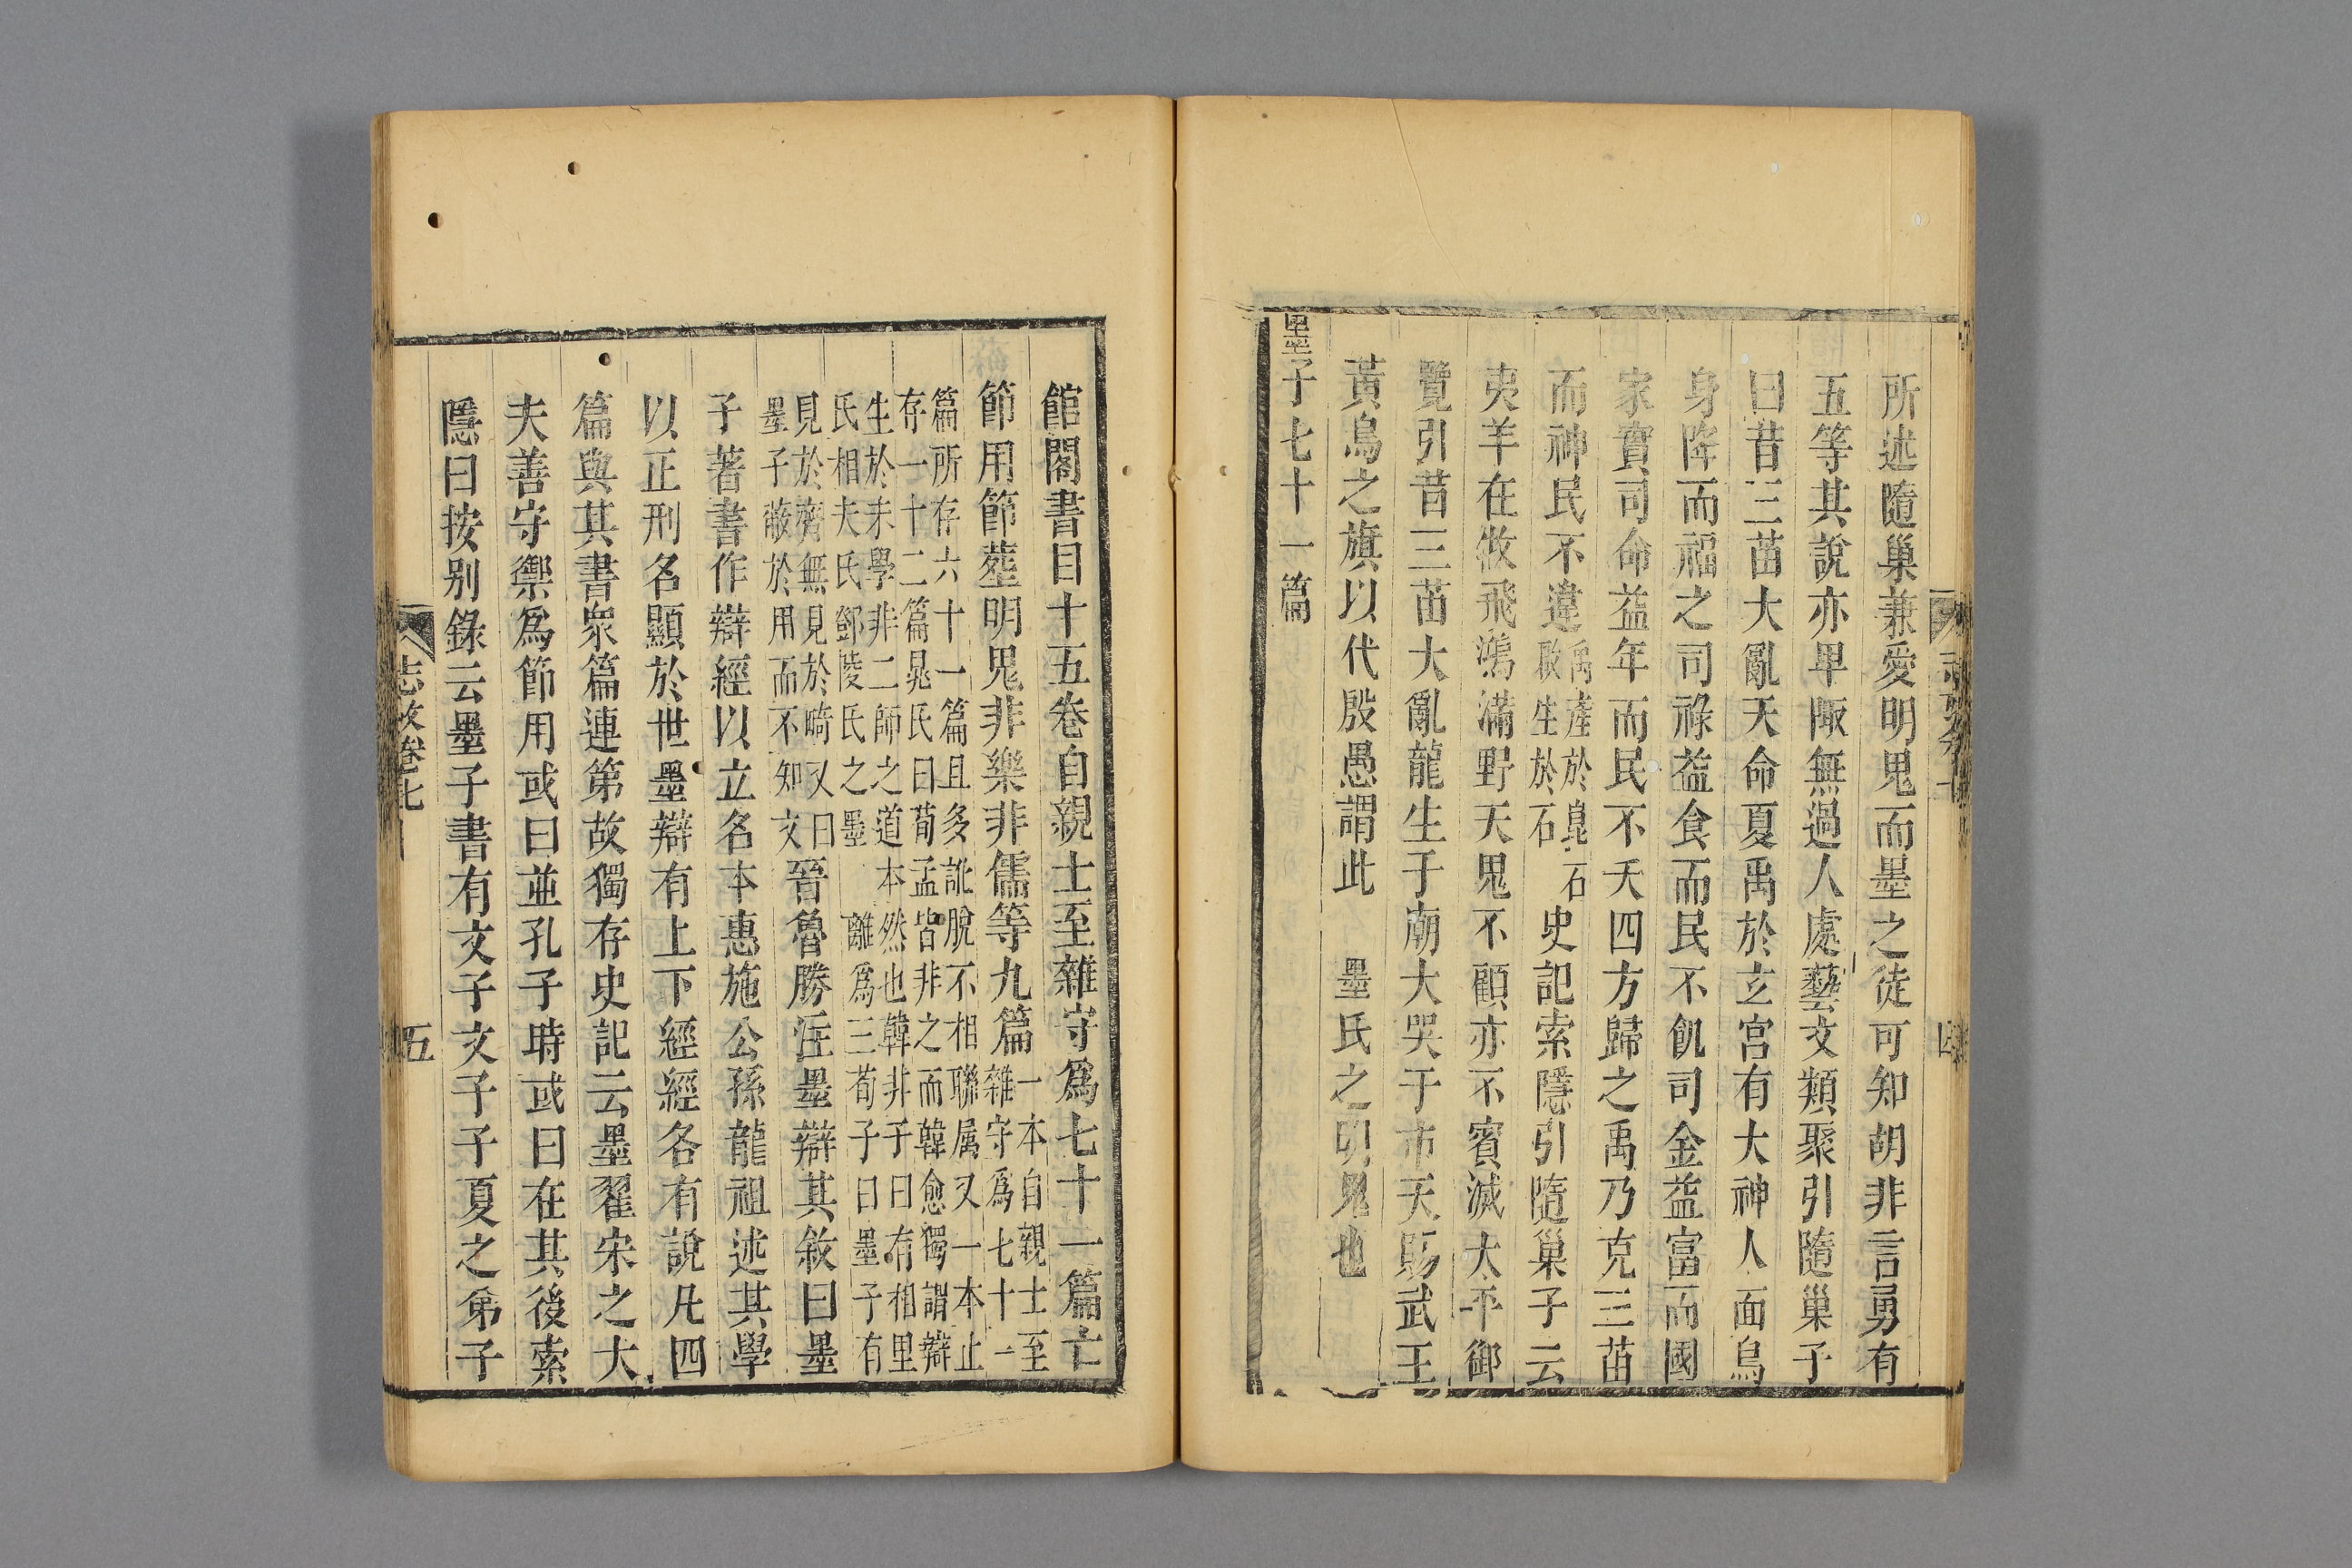 所述隨巢兼愛明鬼而墨之徒可知胡非言勇有
五等其說亦卑陬無過人處藝文類聚引隨巢子
曰昔三苗大亂天命夏禹於玄宮有大神人面鳥
身降而福之司祿益食而民不飢司金益富而國
家實司命益年而民不夭四方歸之禹乃克三苗
而神民不違
禹產於崑石
啟生於石
史記索隱引隨巢子云
夷羊在牧飛鴻滿野天鬼不顧亦不賓滅太平御
覽引昔三苗大亂龍生于廟犬哭于市天賜武王
黃鳥之旗以代殷愚謂此 墨氏之明鬼也
墨子七十一篇
館閣書目十五卷自親士至雜守為七十一篇亡
節用節塟明鬼非樂非儒等九篇
一本自親士至
雜守為七十一
篇所存六十一篇且多訛脫不相聯属又一本止
存一十二篇晁氏曰荀孟皆非之而韓愈獨謂辯
生於末學非二師之道本然也韓非子曰有相里
氏相夫氏鄧陵氏之墨 離為三荀子曰墨子有
見於齊無見於畸又曰
墨子蔽於用而不知文
晉魯勝注墨辯其敘曰墨
子著書作辯經以立名本惠施公孫龍祖述其學
以正刑名顯於世墨辯有上下經經各有說凡四
篇與其書眾篇連第故獨存史記云墨翟宋之大
夫善守禦為節用或曰並孔子時或曰在其後索
隱曰按別錄云墨子書有文子文子子夏之弟子
志攷卷七
五